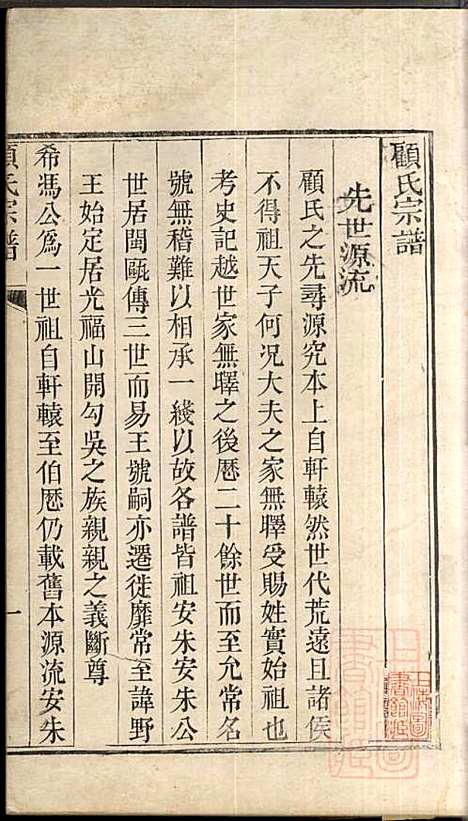 顧氏宗譜
先世源流
顧氏之先尋源究本上自軒轅然世代荒遠且諸侯
不得祖天子何况大夫之家無驛受賜姓實始祖也
考史記越世家無驛之後厯二十餘世而至允常名
號無稽難以相承一綫以故各譜皆祖安朱安朱公
世居閩甌傳三世而易王號嗣亦遷徙靡常至諱野
王始定居光福山開勾吳之族親親之義斷尊
希馮公爲一世祖自軒轅至伯厯仍載舊本源流安朱
顧氏宗譜
一